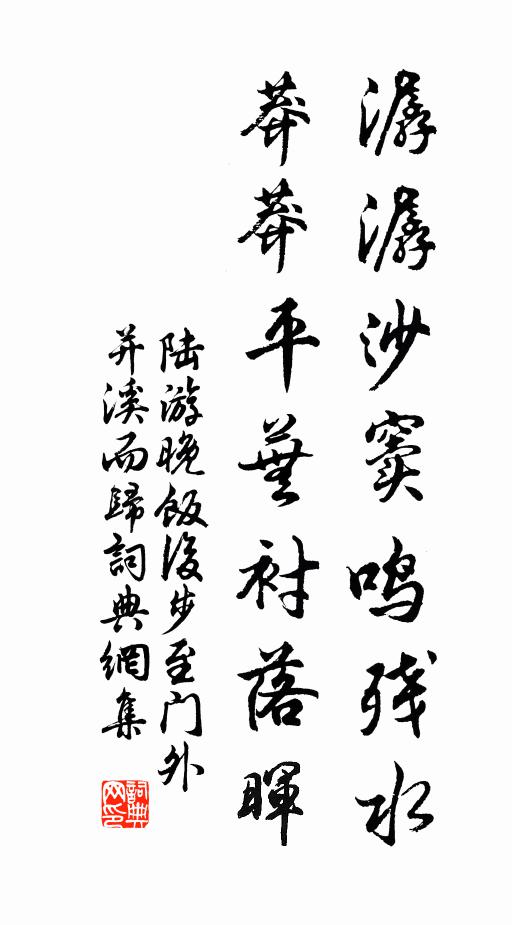 潺潺沙窦鸣残水
莽莽平蕪衬落暉
陆游晚飯後步至门外
并溪而歸詞典網集
詞典
网印